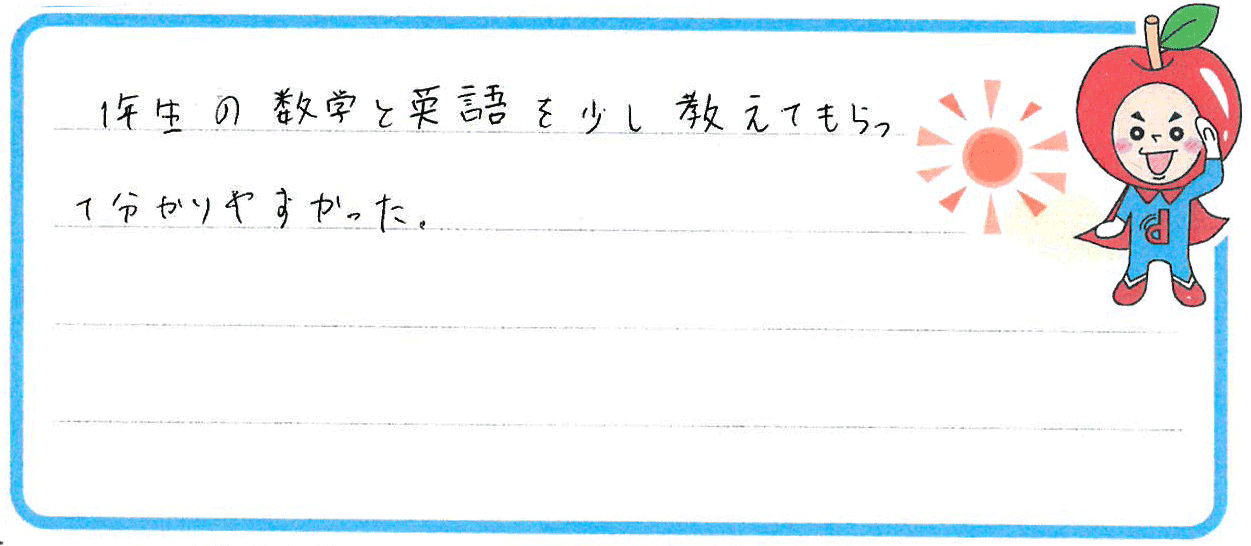 1年生の数学と英語を少し教えてもらっ
て分かりやすかった。